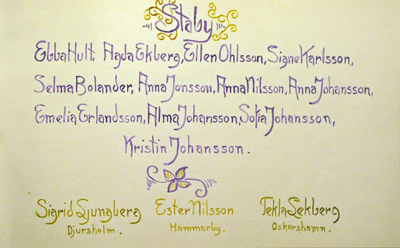 Staby
Ebba Hult Agda Ekberg, Ellen Ohlsson, Signe Karlsson,
Selma Bolander, Anna Jonsson, Anna Nilsson, Anna Johansson,
Emelia Erlandsson, Alma Johansson, Sofia Johansson,
Kristin Johansson.
Sigrid Ljungberg Ester Nilsson Tekla Sekberg
Djursholm. Hammarby. Oskarshamn.